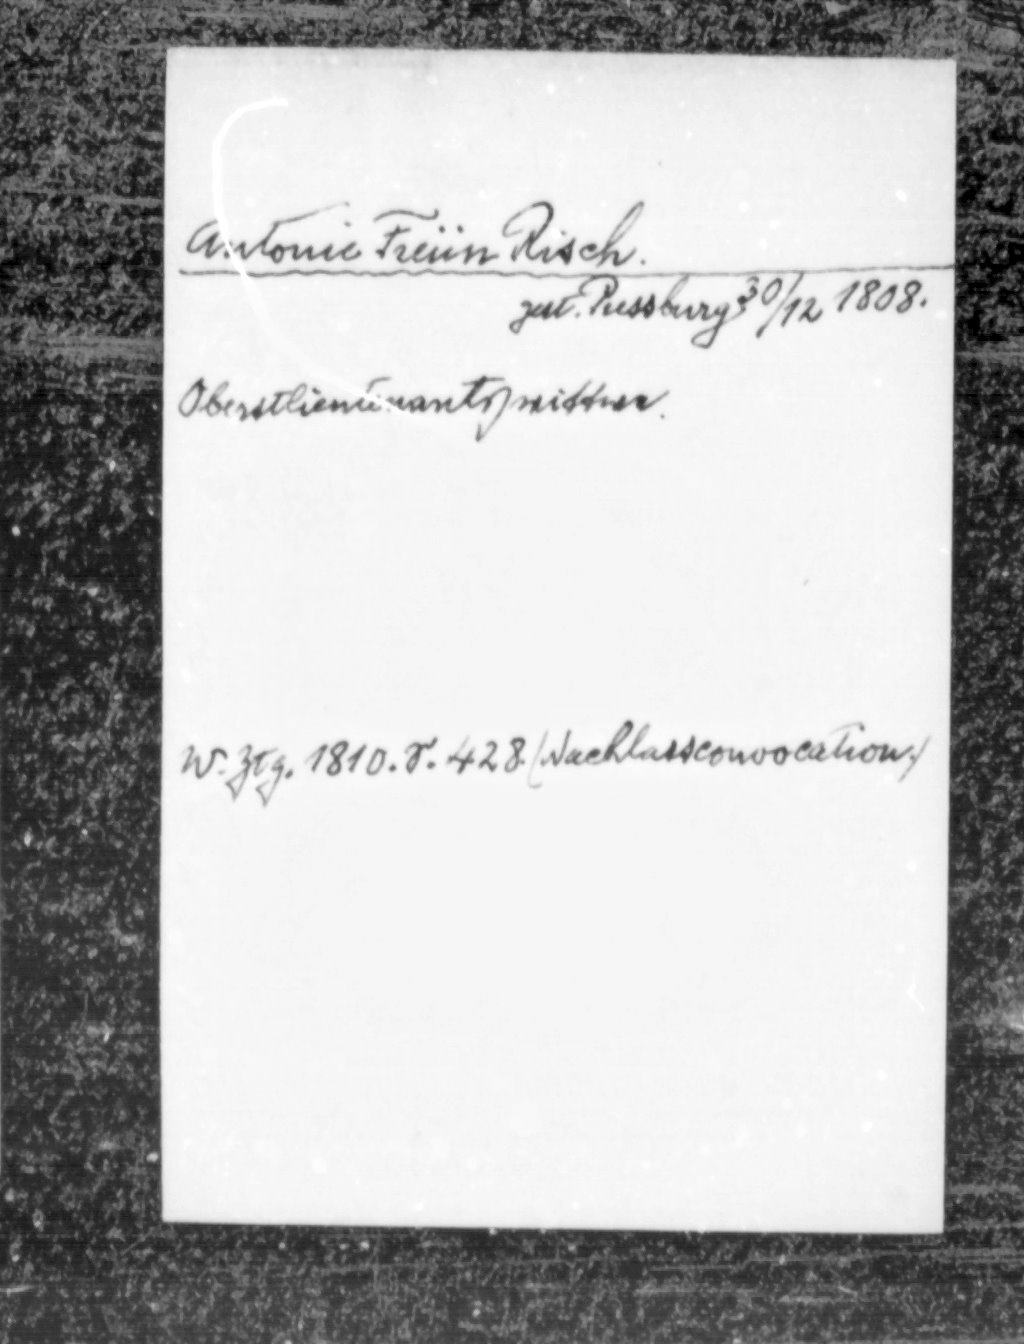 Antonie Freiin Risch.
gest. Pressburg 30/12 1808.
Oberstlieutenantswittwe.
W. Ztg. 1810. S. 428. (Nachlassconvocation.)